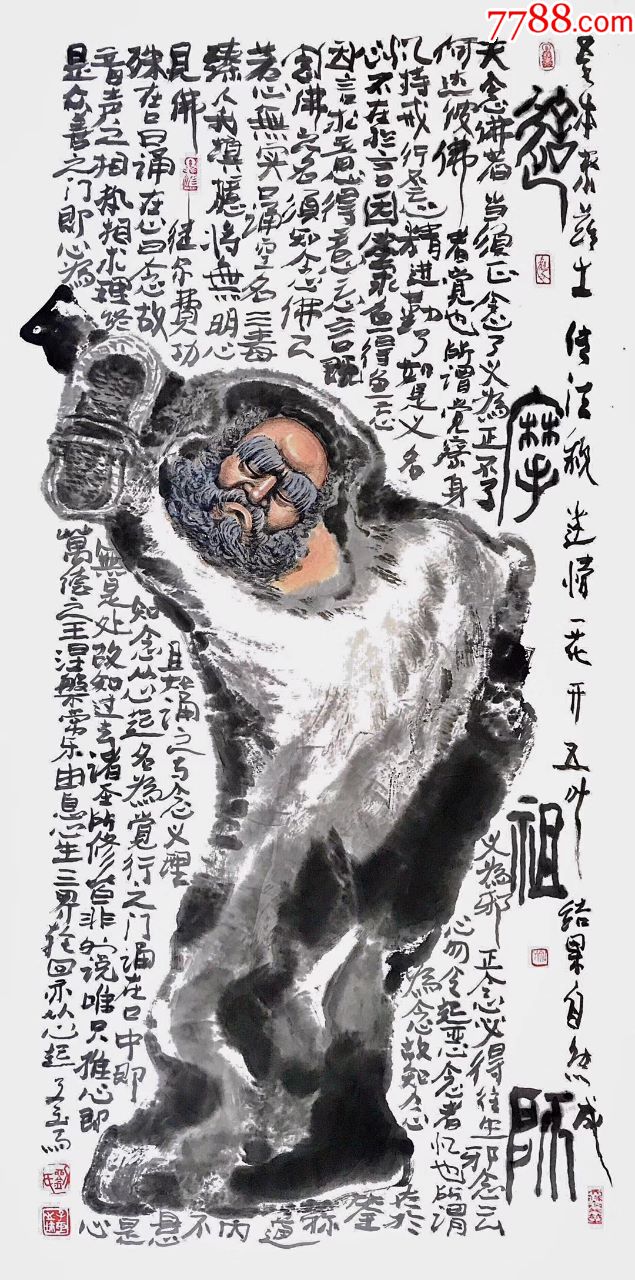 吾本来兹土 传法救迷情 一花开五叶 结果自然成
達
摩
祖
師
夫念佛者当须正念了义为正不了
义为邪 正念必得往生邪念云
何达彼佛者觉也所谓觉察身
心勿令起恶念者忆也所谓
忆持戒行不忘精进勤了如是义名
为念故知念
在於
心不在於言因筌求鱼得鱼忘
筌
因言求意得意忘言既
称
念佛之名须知念佛之
道
若心無实口诵空名三毒
内
臻人我填臆将無明心
不
見佛 徒尔费功
且如诵之与念义理
悬
殊在口曰诵在心曰念故
知念从心起名为觉行之门诵在口中即
是
音声之相执相求理终
無是处故知过去诸圣所修皆非外说唯只推心即
心
是众善之门即心为
萬德之王涅槃常乐由息心生三界轮回亦从心起
7788.com